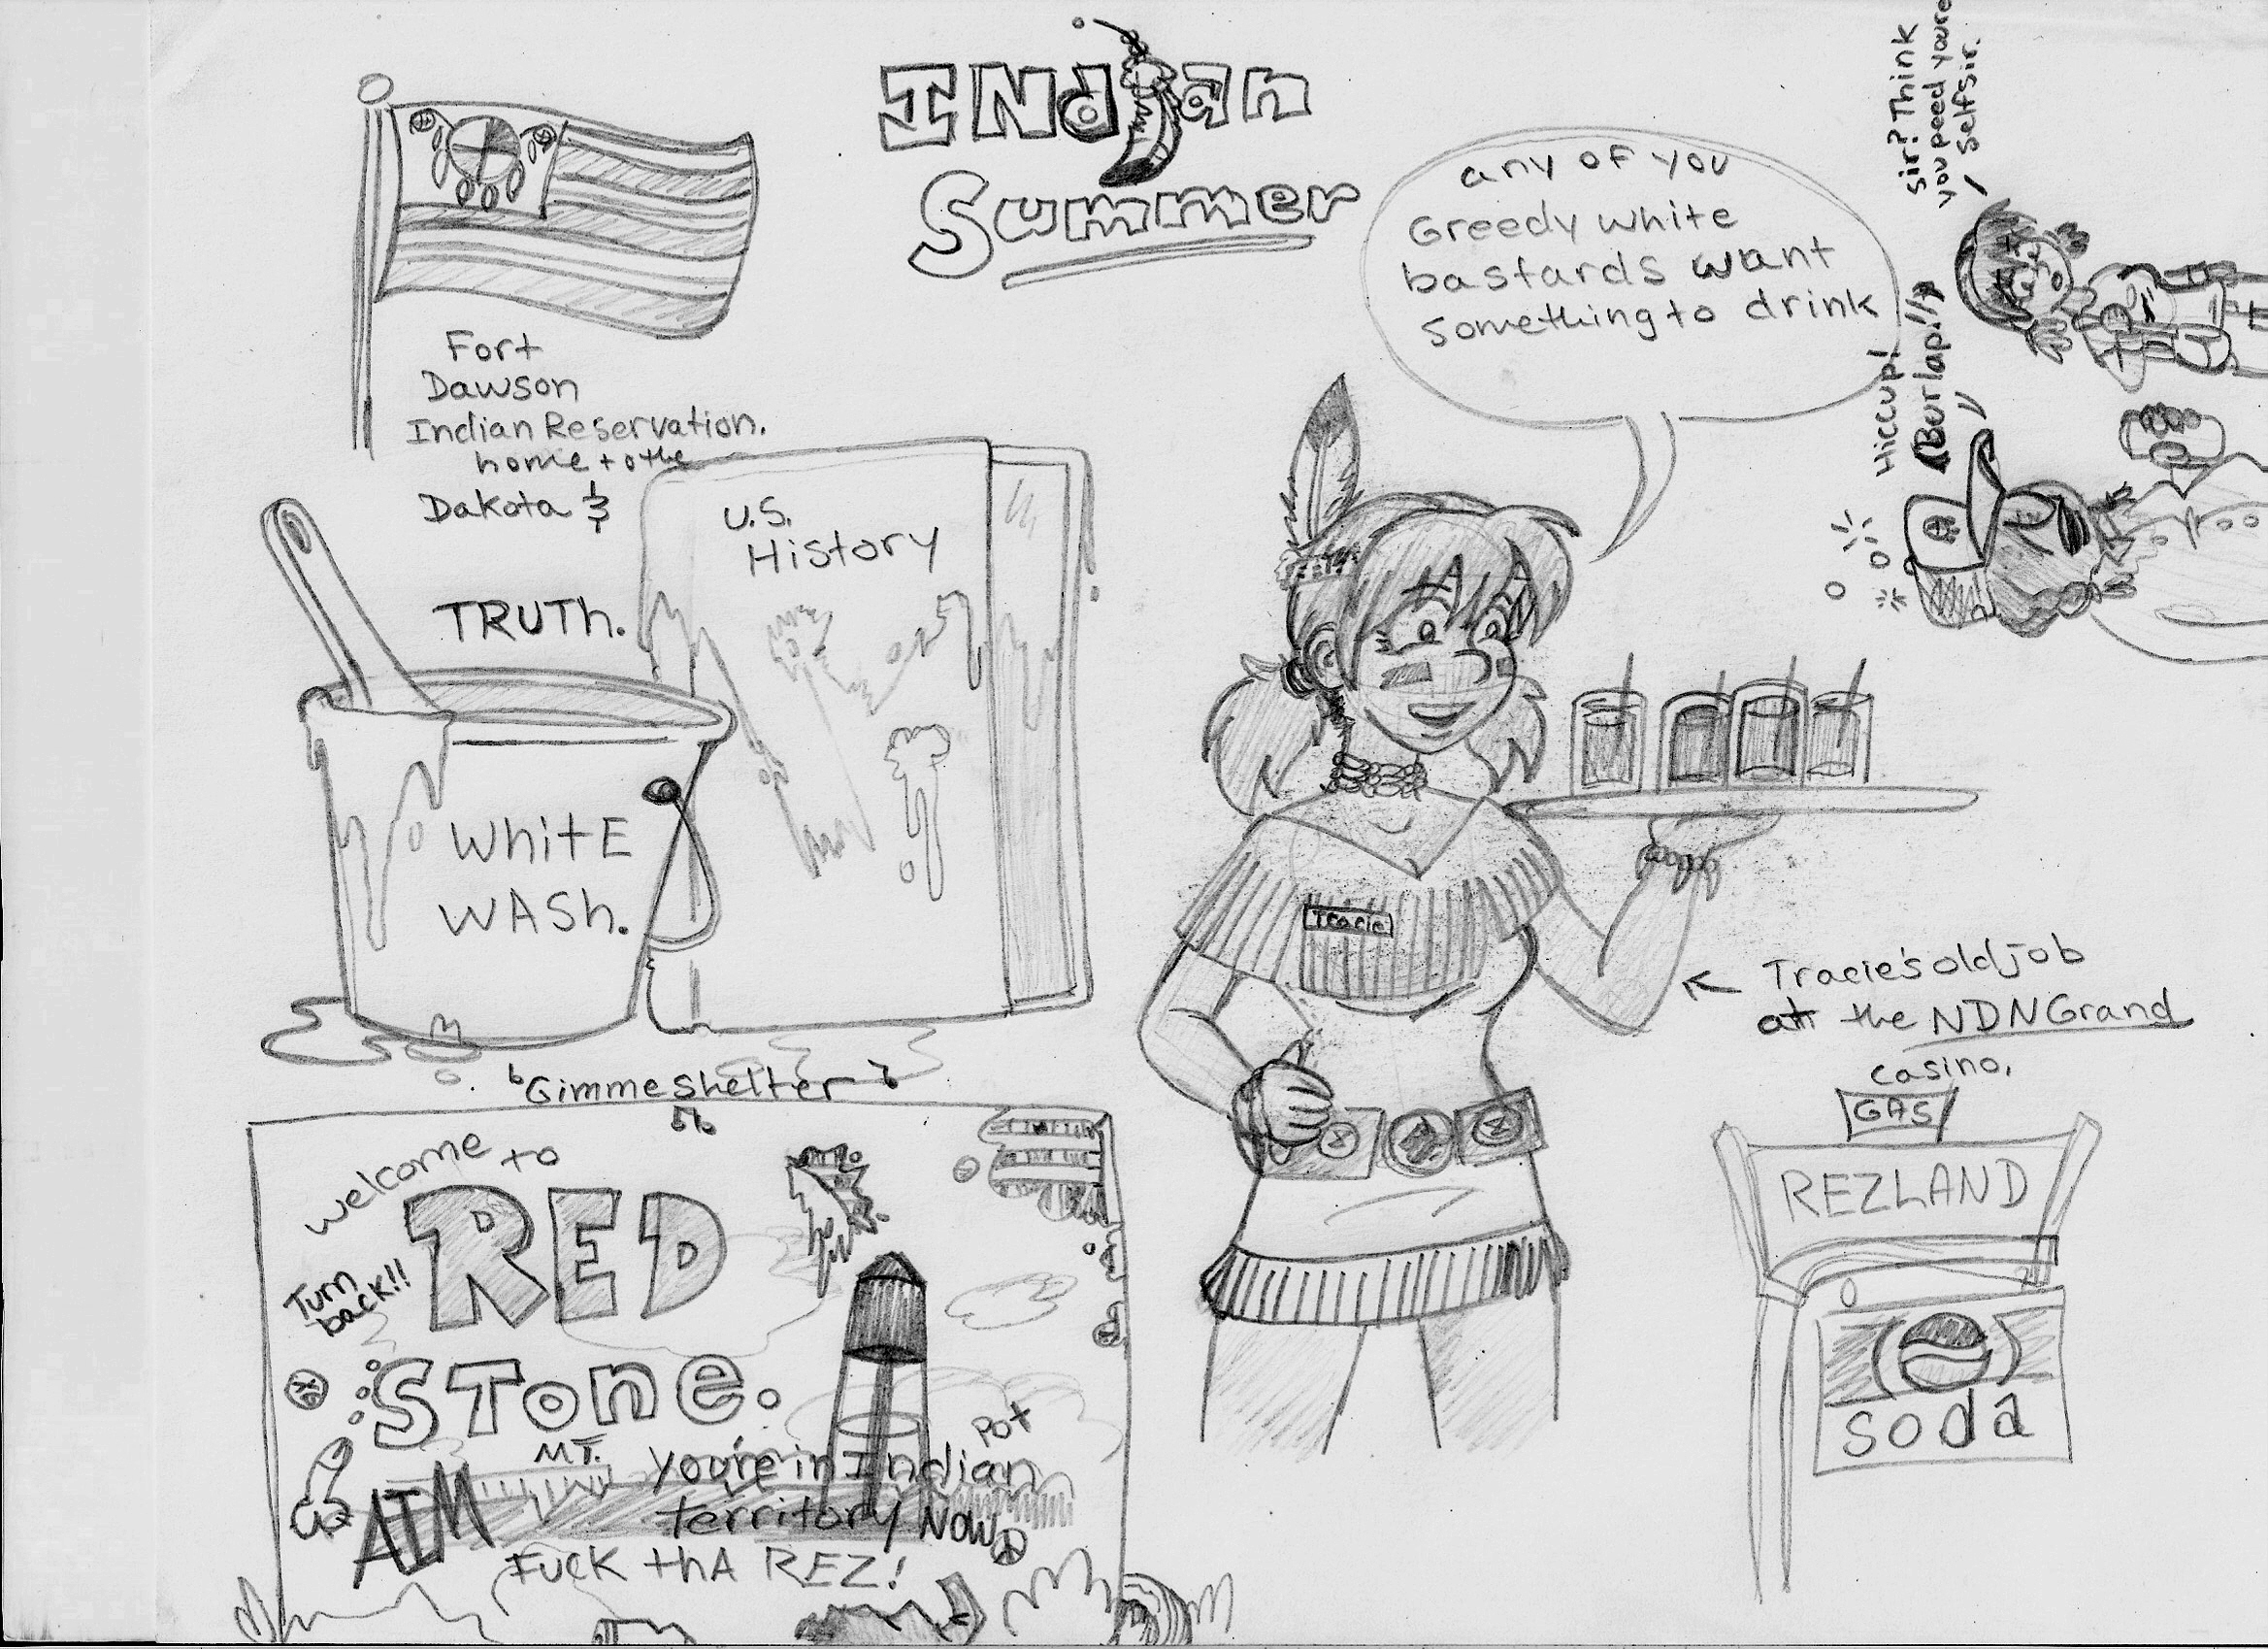 INdian
Summer
Fort
Dawson
Indian Reservation.
home to the
Dakota &
TRUTh.
U.S.
History
WhitE
WASh.
"Gimme shelter"
welcome to
RED
STone.
Turn
back!!
MT.
pot
you're in Indian
territory Now
AIM
FUCK thA REZ!
any of you
Greedy white
bastards want
something to drink
Tracie
Tracie's old job
at the NDN Grand
casino.
GAS
REZLAND
soda
Sir? Think
you peed youre
self sir.
Hiccup!
(Burlap!!)
A